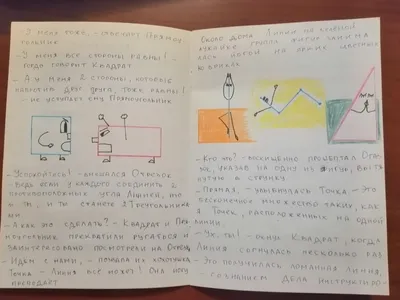 - У меня тоже, - отвечает Прямоу-
гольник
- У меня все стороны равны! -
гордо говорит Квадрат
- А у меня 2 стороны, которые
напротив друг друга, тоже равны!
- не уступает ему Прямоугольник
- Успокойтесь! - вмешался Отрезок
- Ведь если у каждого соединить 2
противоположных угла Линией, то
и ты, и ты станете Треугольника
ми
- А как это сделать? - Квадрат и Пря
моугольник прекратили ругаться и
заинтересованно посмотрели на Отрезок
- Идём с нами, - позвала их хохотушка
Точка - Линия всё может! Она могу
преобразит
Около дома Линии на
лужайке группа фигур занима
лась йогой на ярких цветных
ковриках
- Кто это? - восхищенно прошептал Отре
зок, указав на одну из фигур, вытя
нутую в струнку.
- Прямая, - улыбнулась Точка. - Это
бесконечное множество таких, как
я Точек, расположенных на одной
линии.
- Ух, ты! - охнул Квадрат, когда
Линия согнулась несколько раз
- Это получилась ломаная линия,
- со знанием дела